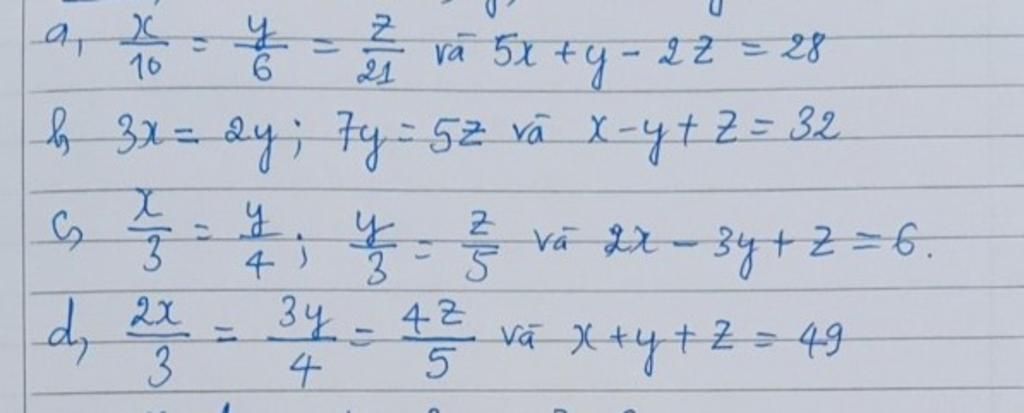 a, x/10 = y/6 = z/21 và 5x + y - 2z = 28
b, 3x = 2y; 7y = 5z và x - y + z = 32
c, x/3 = y/4; y/3 = z/5 và 2x - 3y + z = 6.
d, 2x/3 = 3y/4 = 4z/5 và x + y + z = 49